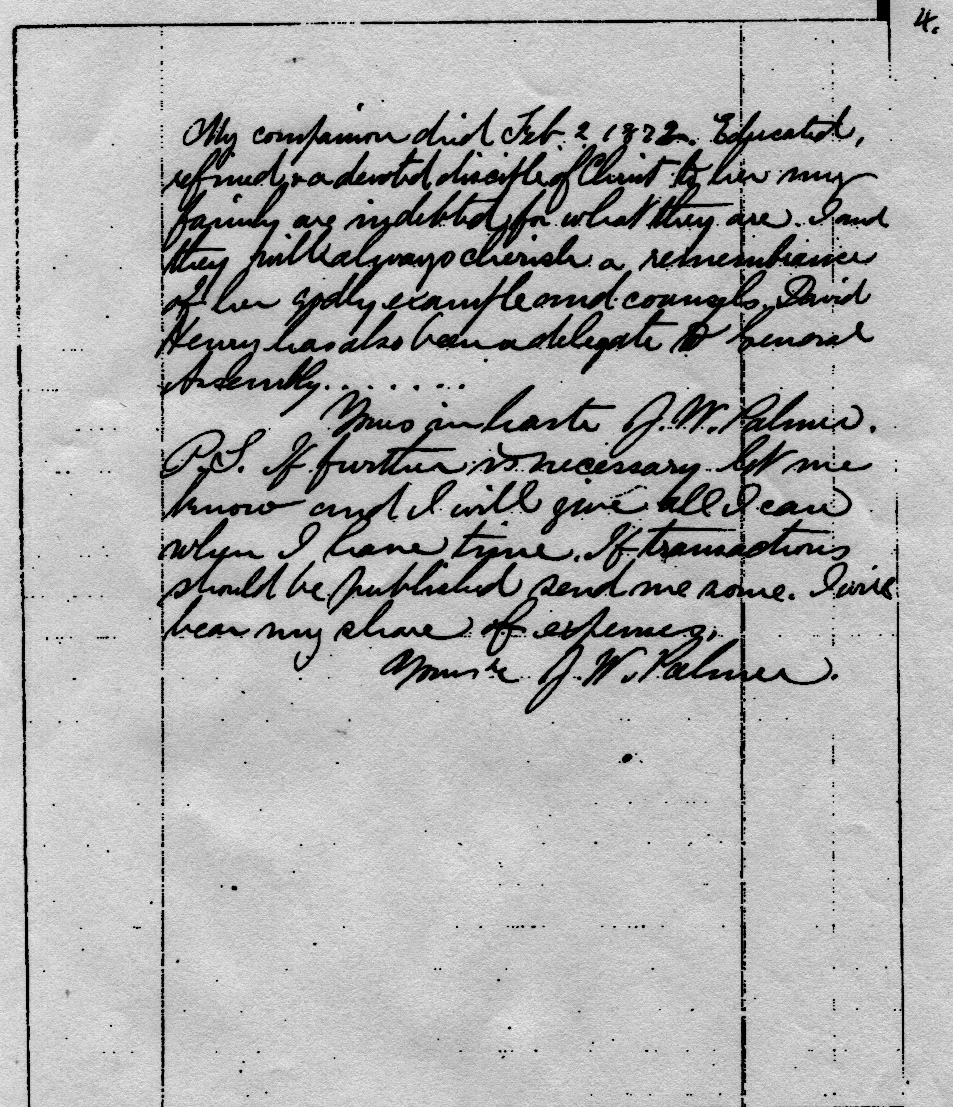 4.
My companion died Feb. 2 1872. Educated,
refined & a devoted disciple of Christ to her my
family are indebted for what they are. I and
they will always cherish a remembrance
of her godly example and counsels. David
Henry has also been a delegate to General
Assembly. . . . . . .
Yours in haste J. W. Palmer.
P.S. If further is necessary let me
know and I will give all I can
when I have time. If transactions
should be published send me some. I will
bear my share of expenses.
Yours &c J. W. Palmer.